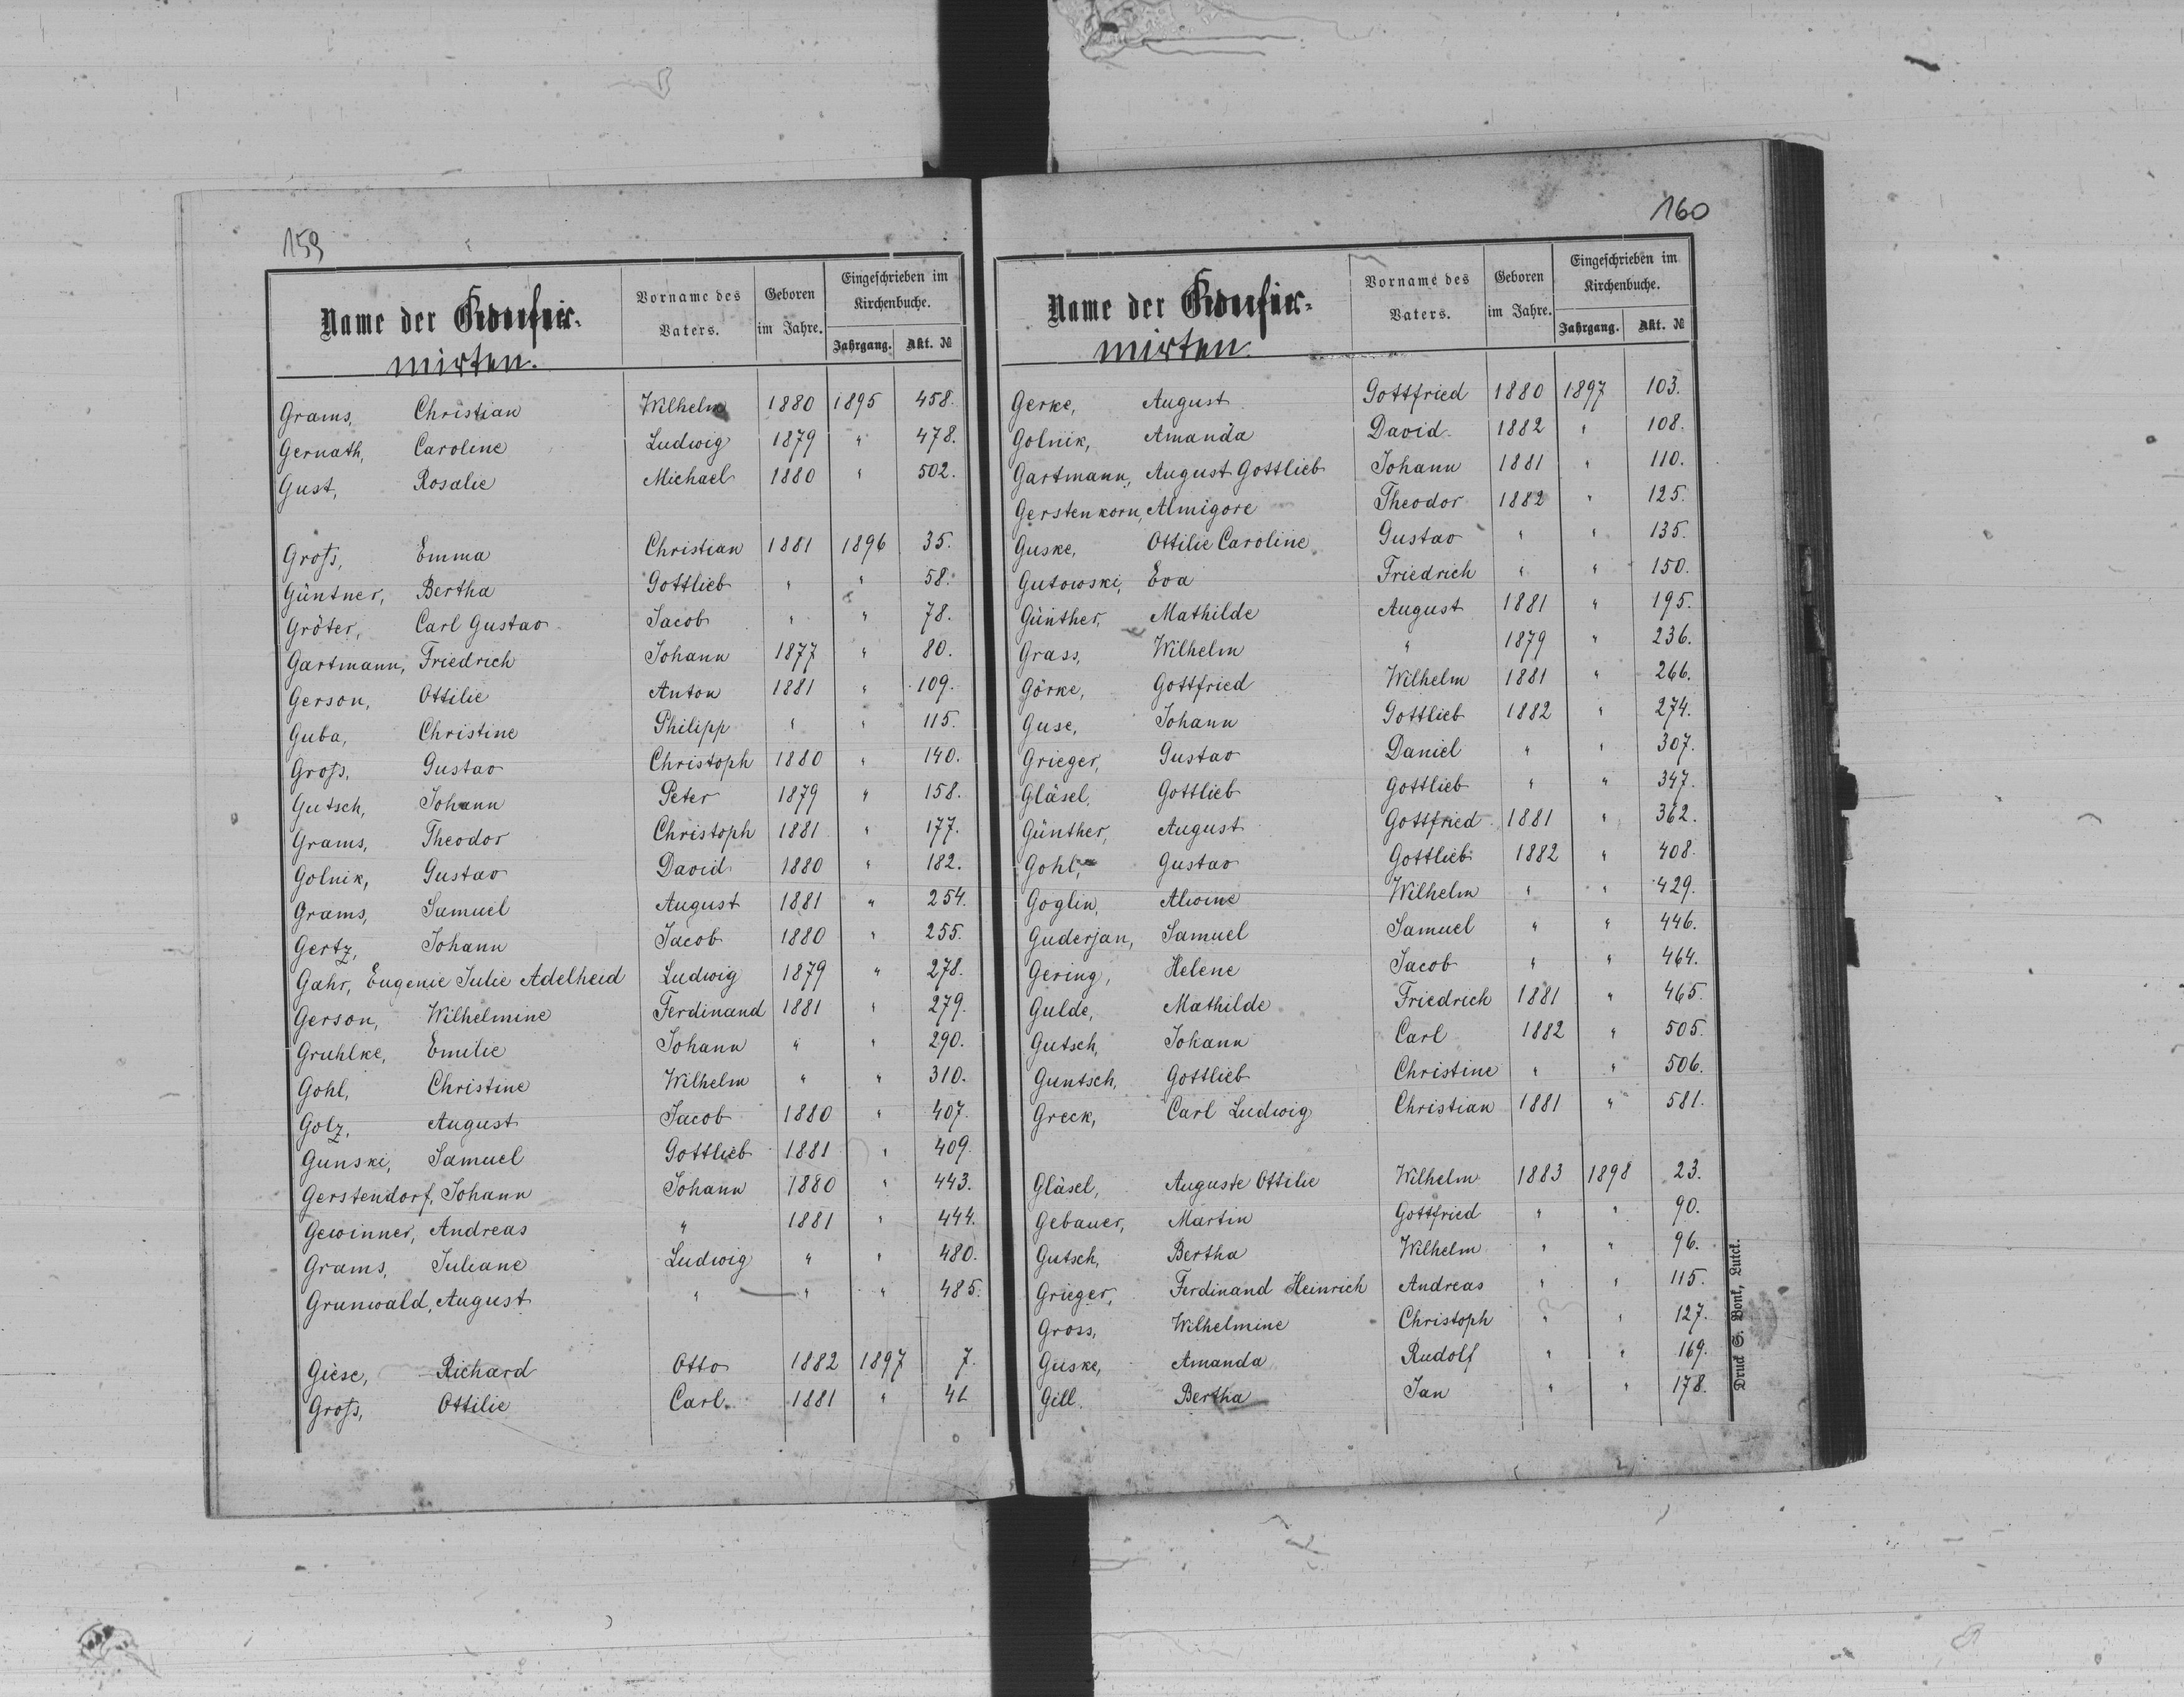 159
Name der Konfir-
mirten.
Vorname des Vaters.
Geboren im Jahre.
Eingeschrieben im Kirchenbuche.
Jahrgang. Akt. №
Grams, Christian Wilhelm 1880 1895 458.
Gernath, Caroline Ludwig 1879 " 478.
Gust, Rosalie Michael 1880 " 502.
Groß, Emma Christian 1881 1896 35.
Güntner, Bertha Gottlieb " " 58.
Gröter, Carl Gustav Jacob " " 78.
Gartmann, Friedrich Johann 1877 " 80.
Gerson, Ottilie Anton 1881 " 109.
Guba, Christine Philipp " " 115.
Groß, Gustav Christoph 1880 " 140.
Gutsch, Johann Peter 1879 " 158.
Grams, Theodor Christoph 1881 " 177.
Golnik, Gustav David 1880 " 182.
Grams, Samuel August 1881 " 254.
Gertz, Johann Jacob 1880 " 255.
Gahr, Eugenie Julie Adelheid Ludwig 1879 " 278.
Gerson, Wilhelmine Ferdinand 1881 " 279.
Gruhlke, Emilie Johann " " 290.
Gohl, Christine Wilhelm " " 310.
Golz, August Jacob 1880 " 407.
Gunski, Samuel Gottlieb 1881 " 409.
Gerstendorf, Johann Johann 1880 " 443.
Gewinner, Andreas " 1881 " 444.
Grams, Juliane Ludwig " " 480.
Grunwald, August " " " 485.
Giese, Richard Otto 1882 1897 7.
Groß, Ottilie Carl. 1881 "
160
Name der Konfir-
mirten.
Vorname des Vaters.
Geboren im Jahre.
Eingeschrieben im Kirchenbuche.
Jahrgang. Akt. №
Gerke, August Gottfried 1880 1897 103.
Golnik, Amanda David 1882 " 108.
Gartmann, August Gottlieb Johann 1881 " 110.
Gerstenkorn, Almigore Theodor 1882 " 125.
Guske, Ottilie Caroline Gustav " " 135.
Gutowski, Eva Friedrich " " 150.
Günther, Mathilde August 1881 " 195.
Grass, Wilhelm " 1879 " 236.
Görke, Gottfried Wilhelm 1881 " 266.
Guse, Johann Gottlieb 1882 " 274.
Grieger, Gustav Daniel " " 307.
Gläsel, Gottlieb Gottlieb " " 347.
Günther, August Gottfried 1881 " 362.
Gohl, Gustav Gottlieb 1882 " 408.
Goglin, Alwine Wilhelm " " 429.
Guderjan, Samuel Samuel " " 446.
Gering, Helene Jacob " " 464.
Gulde, Mathilde Friedrich 1881 " 465.
Gutsch, Johann Carl 1882 " 505.
Guntsch, Gottlieb Christine " " 506.
Greck, Carl Ludwig Christian 1881 " 581.
Gläsel, Auguste Ottilie Wilhelm 1883 1898 23.
Gebauer, Martin Gottfried " " 90.
Gutsch, Bertha Wilhelm " " 96.
Grieger, Ferdinand Heinrich Andreas " " 115.
Gross, Wilhelmine Christoph " " 127.
Guske, Amanda Rudolf " " 169.
Gill. Bertha Jan " " 178.
Druck S. Bonk, Lutck.